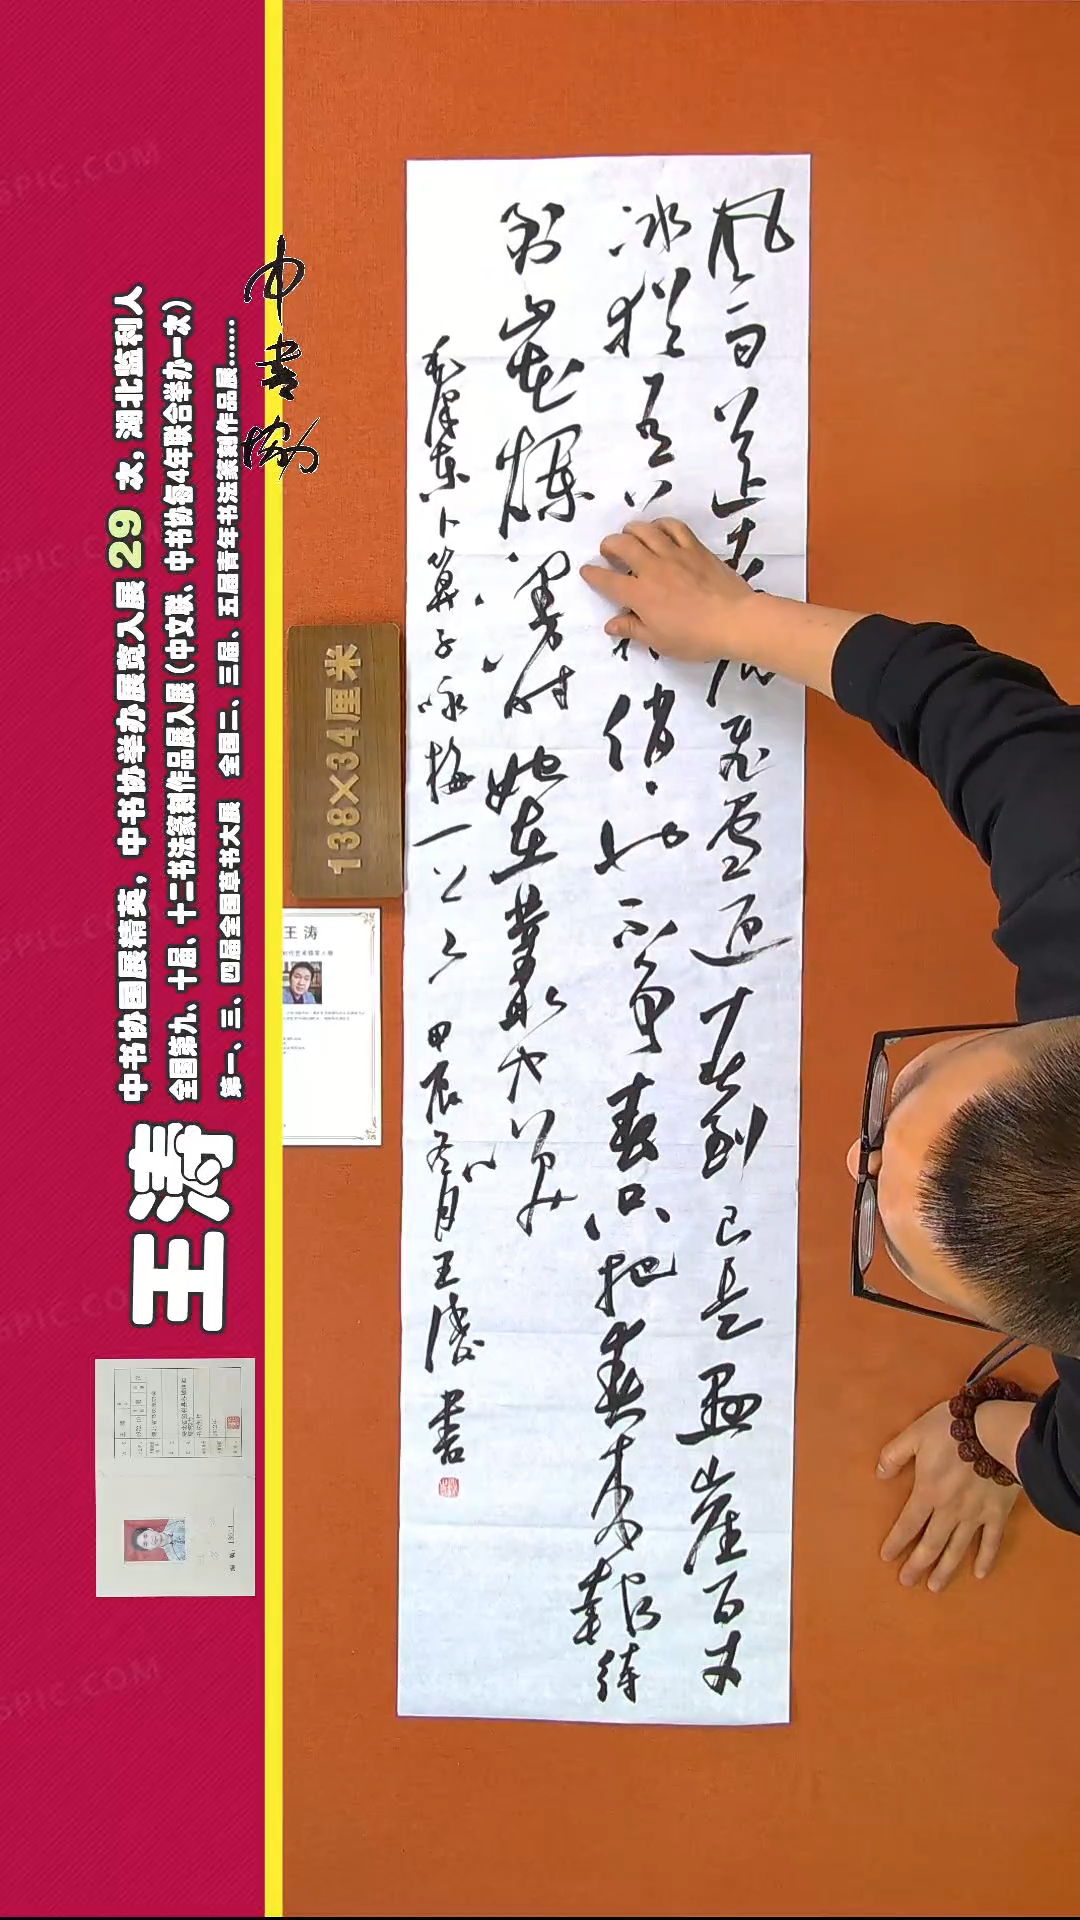 风雨送春归飞雪迎春到已是悬崖百丈
冰犹有花俏俏也不争春只把春来报待
到山花烂漫时她在丛中笑
毛泽东卜算子咏梅一首 甲辰冬月王涛书
中书协
中书协国展精英，中书协举办展览入展 29 次，湖北监利人
全国第九、十届、十二书法篆刻作品展入展（中文联、中书协每4年联合举办一次）
第一、三、四届全国草书大展 全国二、三届、五届青年书法篆刻作品展……
王涛
138×34厘米
王涛